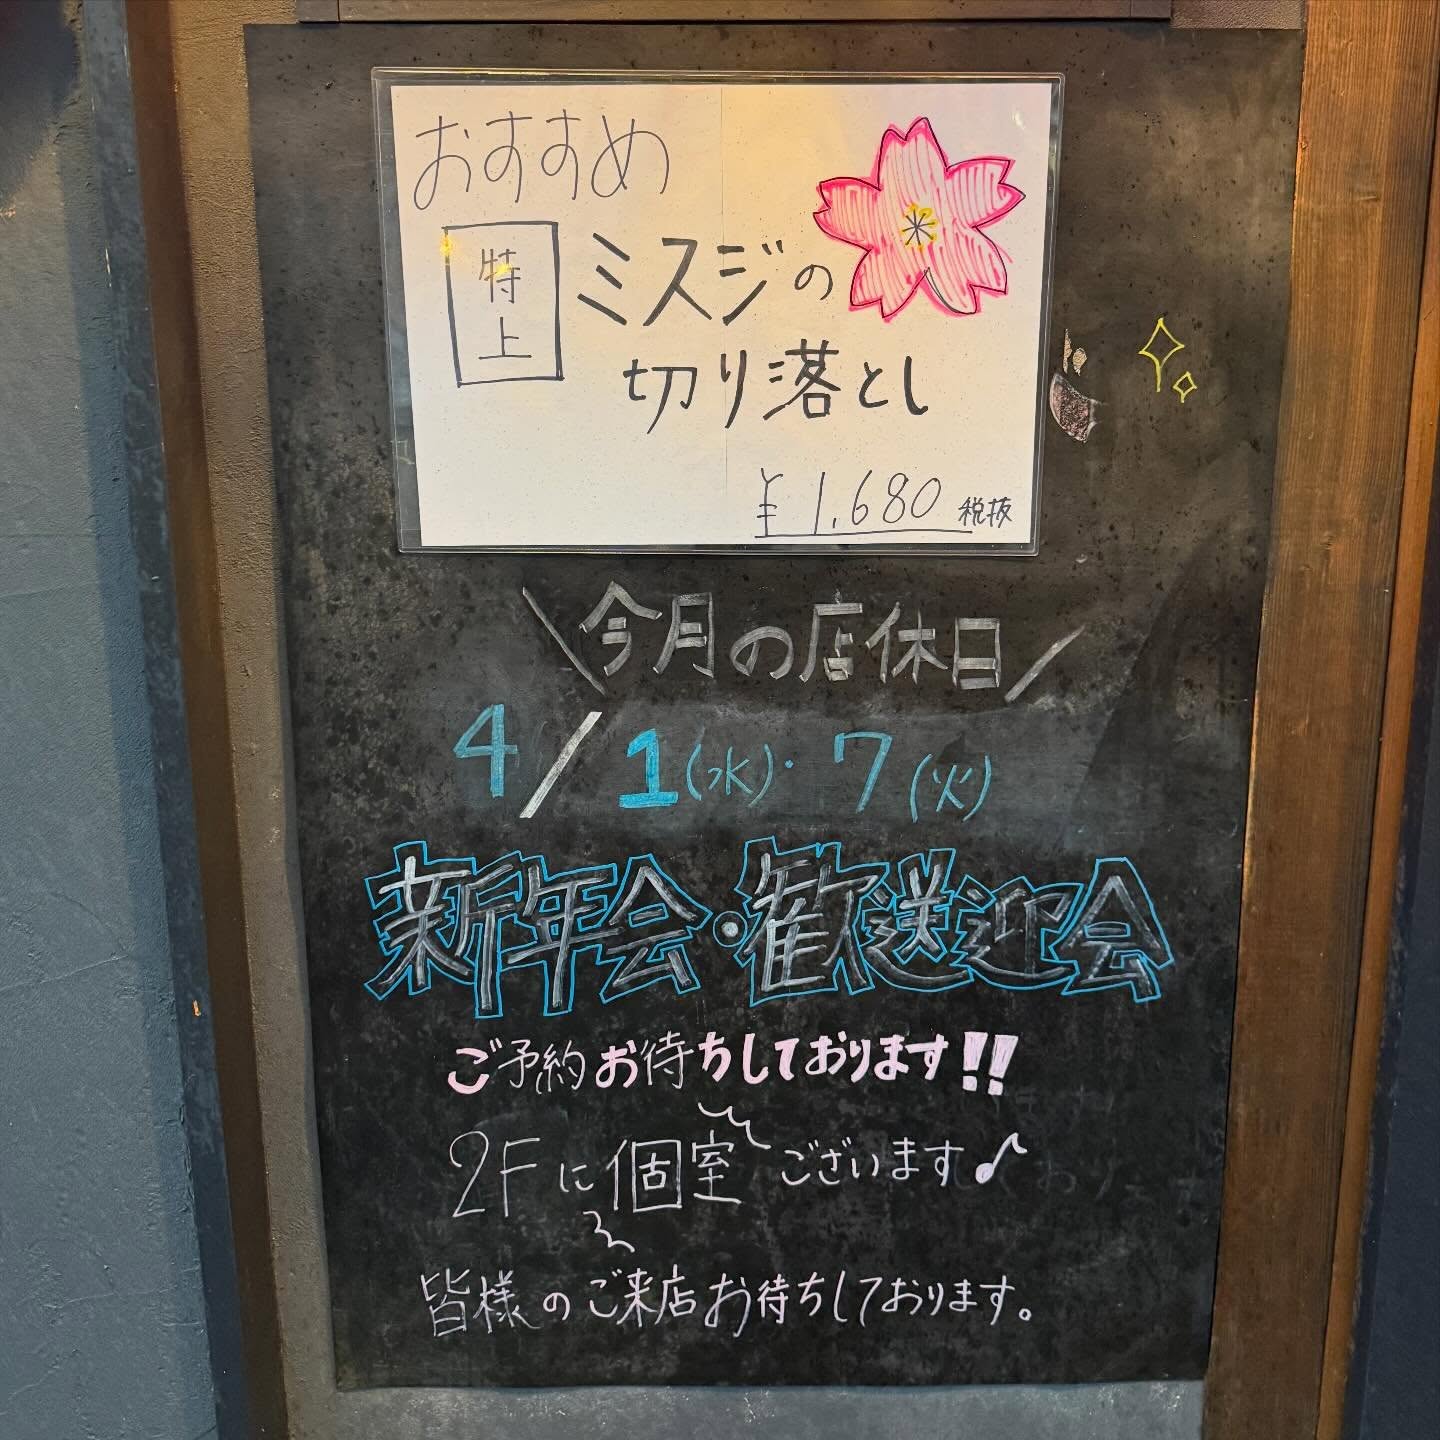 おすすめ
特上
ミスジの
切り落とし
¥1,680 税抜
\今月の店休日/
4/1(水)・7(火)
新年会・歓送迎会
ご予約お待ちしております!!
2Fに個室ございます♪
皆様のご来店お待ちしております。